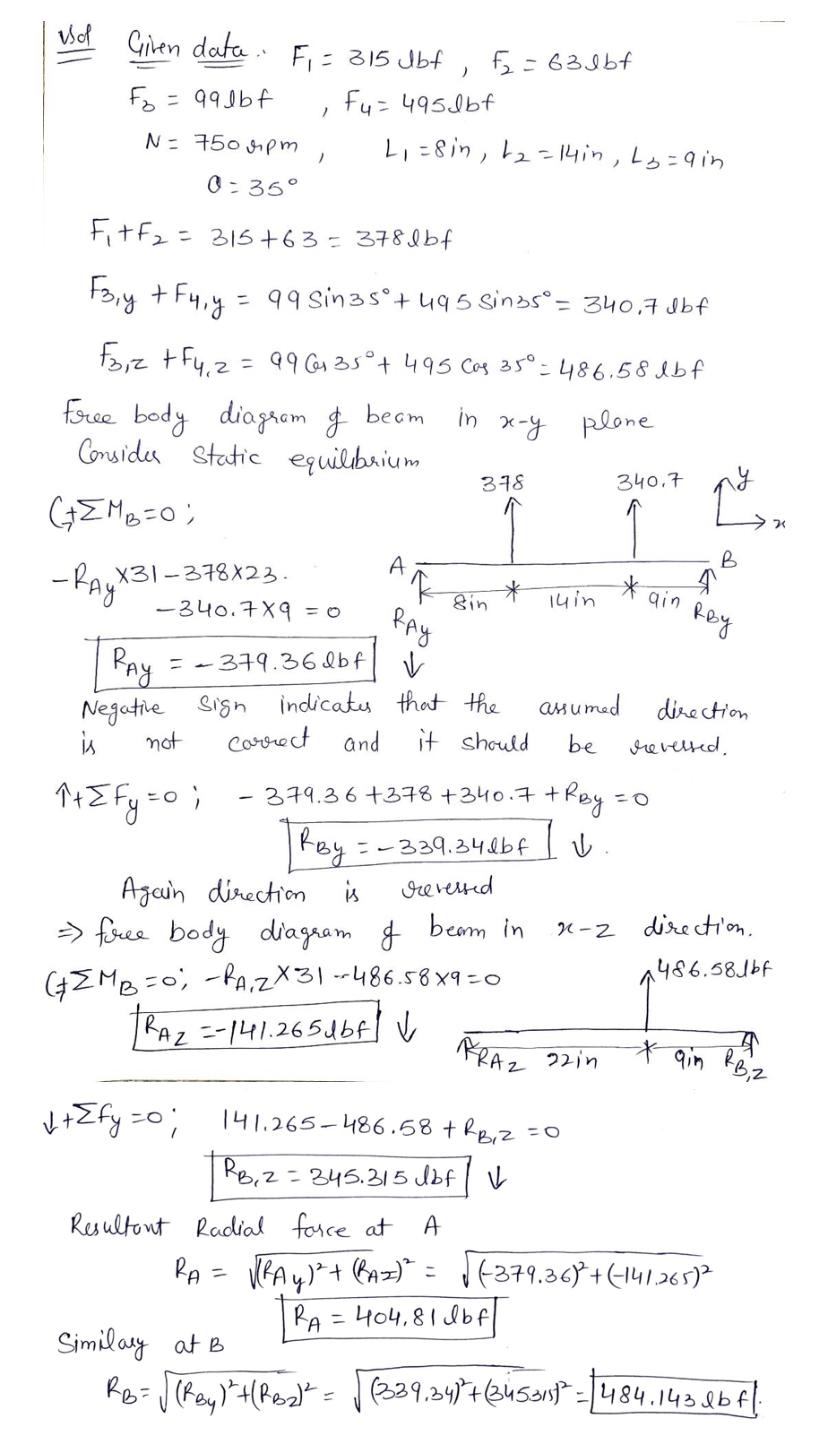 Sol Given data :- F₁ = 315 lbf , F₂ = 63 lbf
F₃ = 99 lbf , F₄ = 495 lbf
N = 750 rpm , L₁ = 8in , L₂ = 14in , L₃ = 9in
θ = 35°
F₁ + F₂ = 315 + 63 = 378 lbf
F₃,y + F₄,y = 99 Sin35° + 495 Sin35° = 340.7 lbf
F₃,z + F₄,z = 99 Cos 35° + 495 Cos 35° = 486.58 lbf
Free body diagram of beam in x-y plane
Consider Static equilibrium
378 340.7 y
x
↺+ΣM_B = 0 ;
-R_Ay×31 - 378×23.
-340.7×9 = 0
A B
8in 14in 9in
R_Ay R_By
R_Ay = -379.36 lbf ↓
Negative Sign indicates that the assumed direction
is not correct and it should be reversed.
↑+ΣFy = 0 ; - 379.36 + 378 + 340.7 + R_By = 0
R_By = -339.34 lbf ↓.
Again direction is reversed
⇒ free body diagram of beam in x-z direction.
↺+ΣM_B = 0; -R_A,z×31 - 486.58×9 = 0
486.58 lbf
R_Az = -141.265 lbf ↓
R_Az 22in 9in R_B,z
↓+Σfy = 0; 141.265 - 486.58 + R_B,z = 0
R_B,z = 345.315 lbf ↓
Resultant Radial force at A
R_A = √(R_Ay)² + (R_Az)² = √(-379.36)² + (-141.265)²
R_A = 404.81 lbf
Similary at B
R_B = √(R_By)² + (R_Bz)² = √(339.34)² + (345315)² = 484.143 lbf.